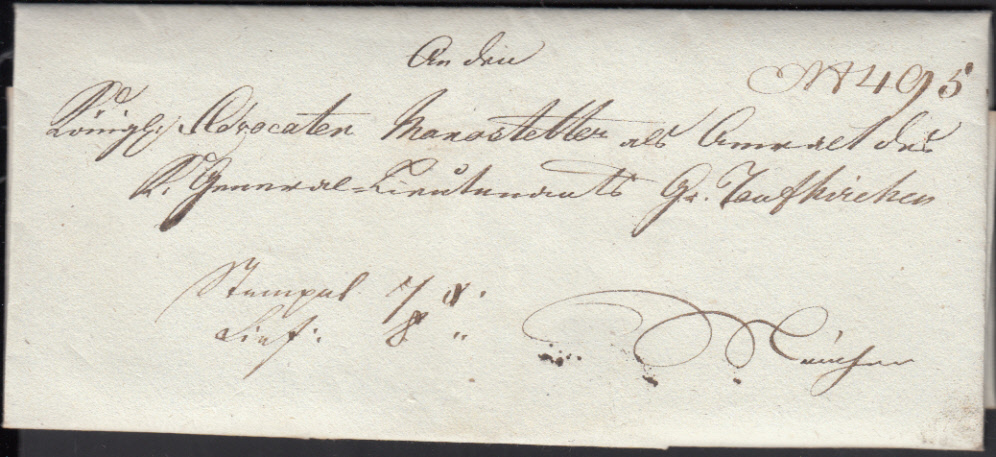 An den
N 495
Königl: Advocaten Manostetter als Anwalt des
K. General-Lieutenants Gr. Taufkirchen
Stempel 7 x.
Lief: 8 "
München